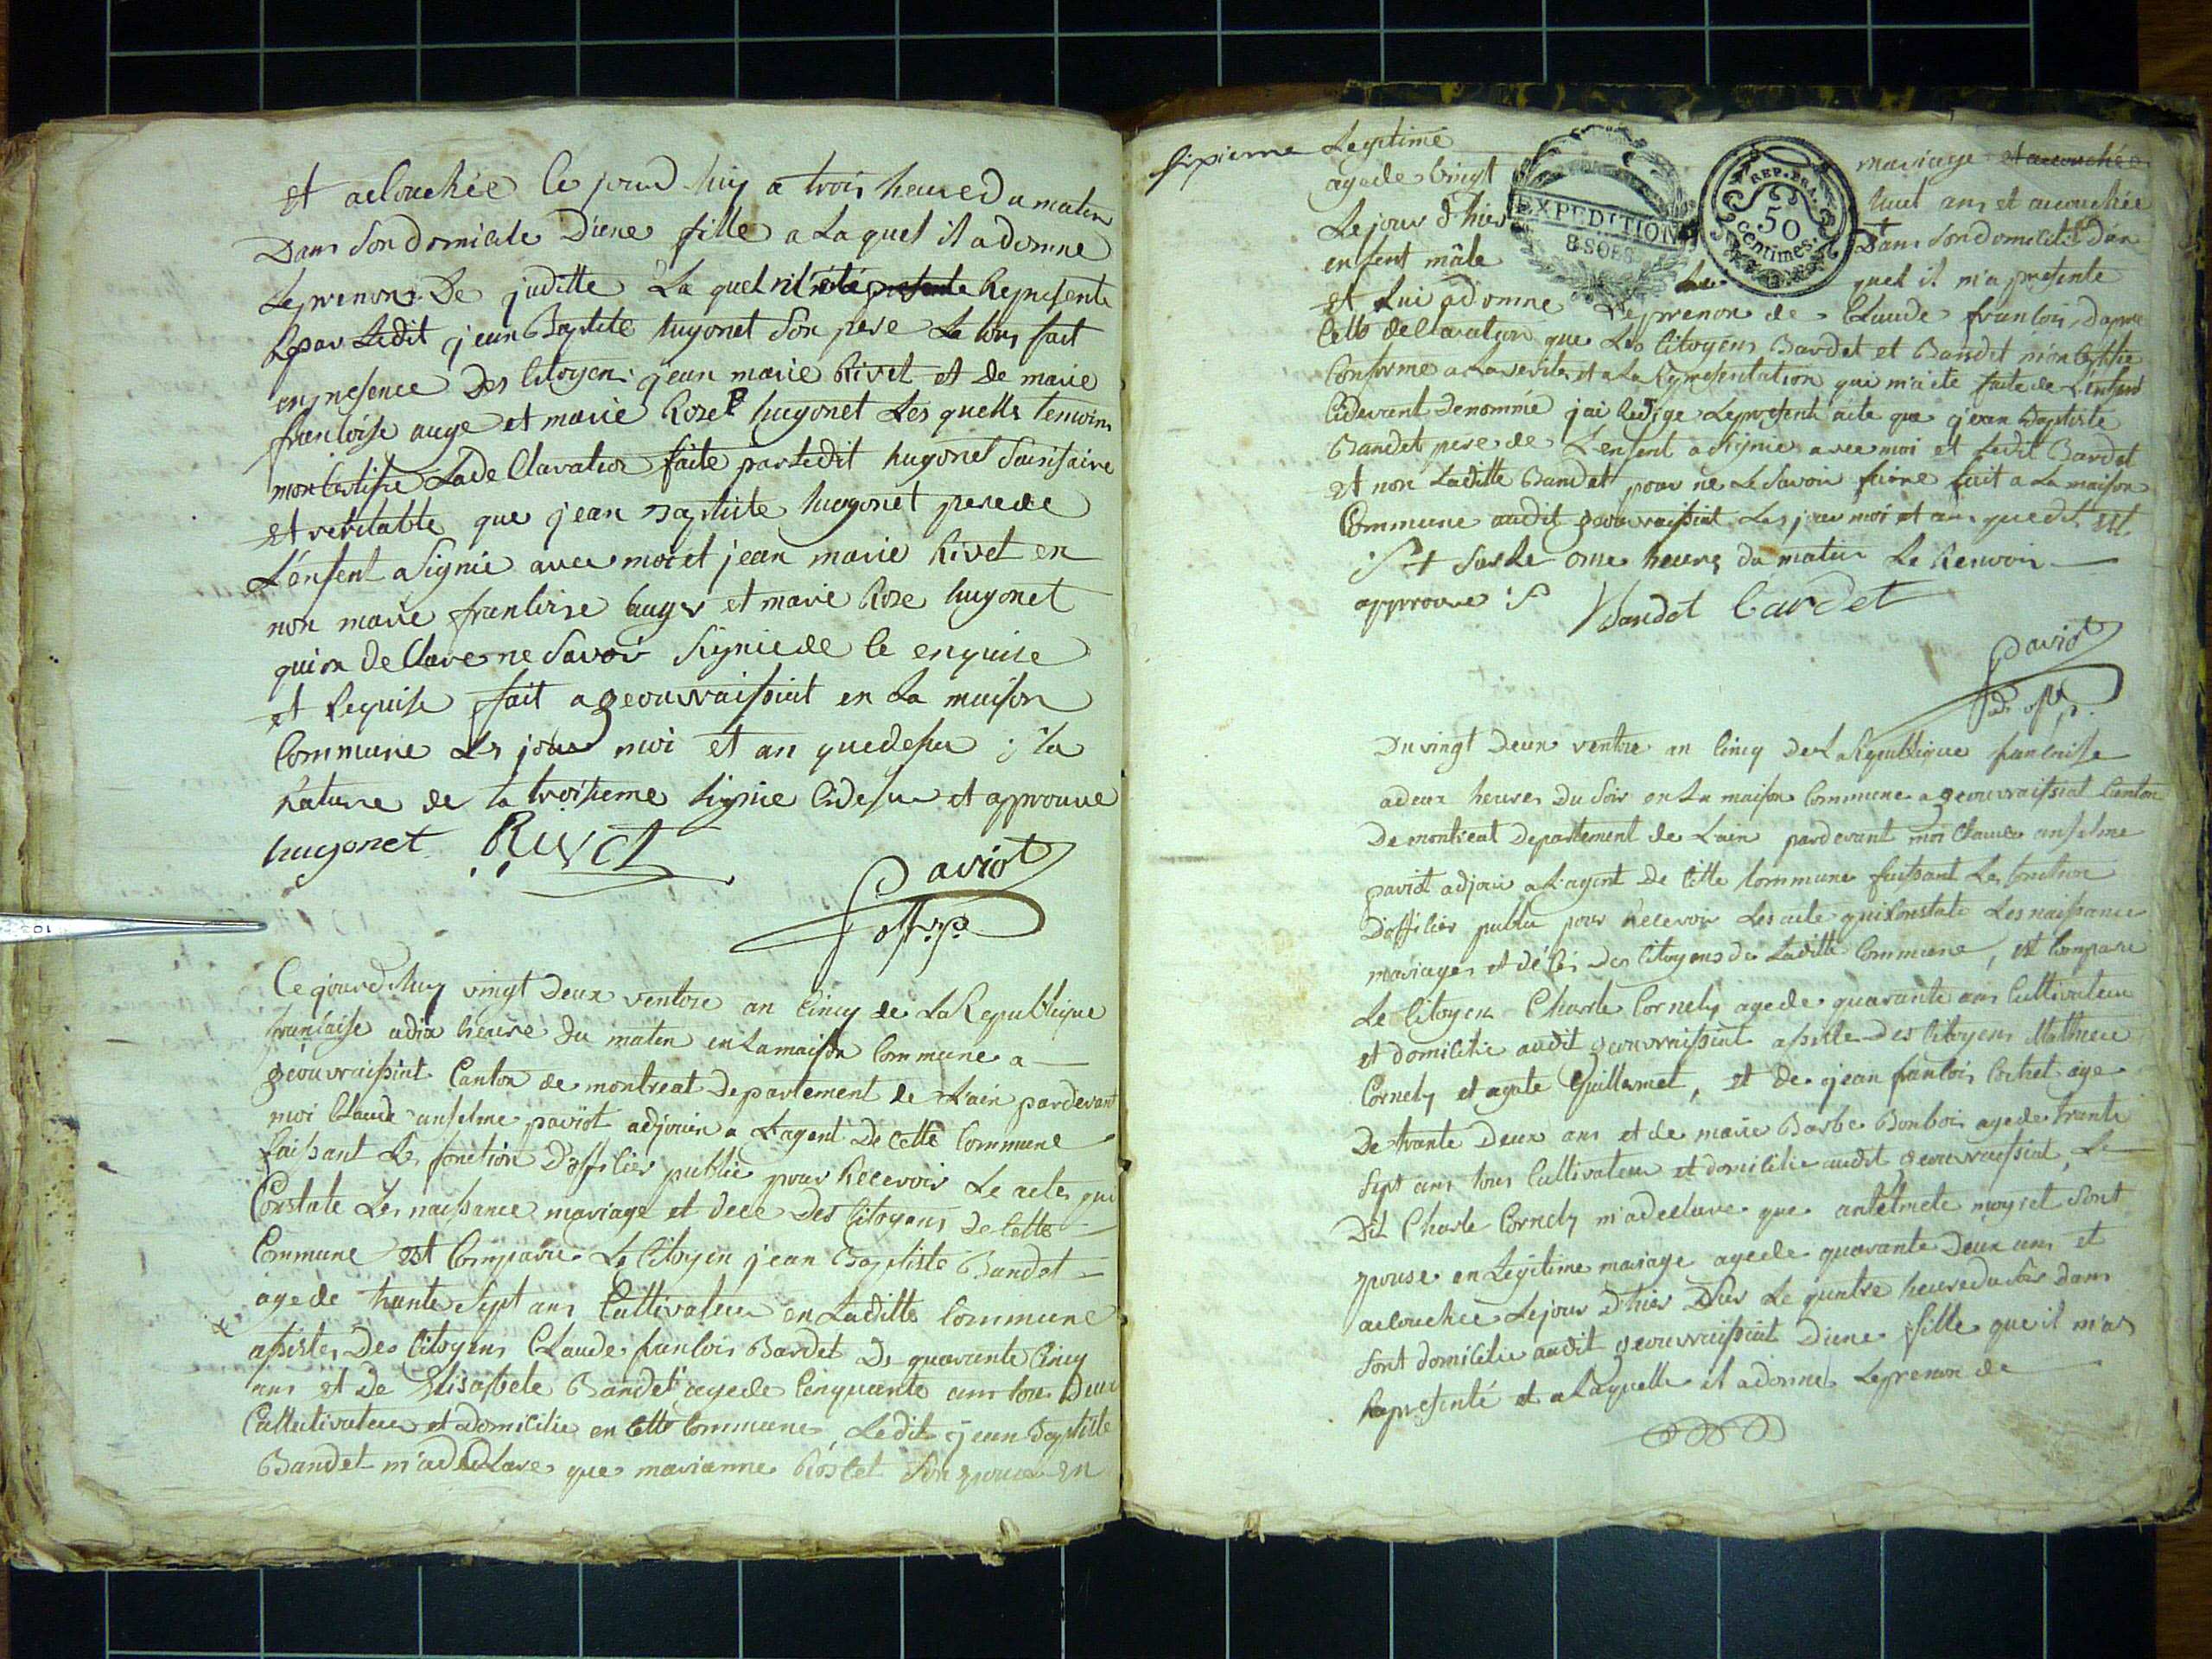 et aclouchée ce jourd huy a trois heure du maten
Dans son domicile D'iene fille a la quel il a domne
le prenom De juditte La quel Represente
par Ledit jean Baptite hugonet son pere Le tous fait
en presence Des Citoyens jean marie Rivet et de marie
francoise auge et marie Roze hugonet Les quells temoins
mon Certifie La de Claration faite par Ledit hugonet
et veritable que jean Baptiste hugonet pere de
L'enfent a Signié avec moi et jean marie Rivet en
non marie francoise auger et marie Roze hugonet
qui on de Clare ne Savoir Signie de ce enquise
et Requise fait a geouvraissiat en La maison
Commune Les jour moi et an que desu ; la
Rature de la troisieme lignie cidesu et approuve
hugonet Rivet
Paviot
off. p.
Ce jourd'huy vingt Deux ventose an Cinq de La Republique
francaise a dix heure Du maten en La maison Commune a
géouvraissiat Canton de montreal Departement de L'ain pardevant
moi Claude anselme paviot adjoin a L'agent De cette Commune
faisant Les fonction D'officier public pour Recevoir Le actes qui
Constate Les naissance mariage et dece Des Citoyens de Cette
Commune est Comparu Le Citoyen jean Baptiste Bandet
age de trante Sept ans Cultivateur en Laditte Commune
assiste Des Citoyens Claude francois Bardet De quarante Cinq
ans et De Elisabete Bandet agede Cinquante ans tous Deux
Cultivateur et Domicilie en Cette Commune, Ledit jean Baptiste
Bandet m'a de Clare que marianne son epouse en
sixieme Legitime mariage et accouchée
EXPEDITION
8 SOLS
REP. FRA.
50
Centimes.
age de vingt huit ans et accouchée
Le jour d'hier Dans son domicilie D'un
enfent mâle Le quel il m'a presente
et Lui a domne Le prenon de Claude francois, Dapre
Cette declaration que Les Citoyens Bardet et Bandet m'on Certifie
Conforme a La verite, et a La Representation qui m'a ete faite de L'enfent
Cidevant Denommé j'ai Redige Le present acte que jean Baptiste
Bandet pere de L'enfent a Signie avec moi et Ledit Bardet
et non Laditte Bandet pour ne Le Savoir faire fait a La maison
Commune audit geouvraissiat Les jour moi et an que dit est
Sur Le onze heures du matin Le Renvoir
approuve
Bandet Bardet
Paviot
off. p.
Du vingt Deux ventose an Cinq De La Republique francaise
a deux heures Du Soir en La maison Commune a geouvraissiat Canton
De montreal Departement de Lain pardevant moi Claude anselme
paviot adjoin a L'agent De Cette Commune faissant Les fonction
D'officier public pour Recevoir Les acte qui Constate Les naissance
mariages et décès Des Citoyens de Laditte Commune, est Compare
Le Citoyen Charle Cornely age de quarante ans Cultivateur
et domicilie audit geouvraissiat assiste Des Citoyens Mathieu
Cornely et agate Guillermet, et de jean francois Cochet age
De trante Deux ans et de marie Barbe Bonboi age de trante
Sept ans tous Cultivateur et domicilie audit geouvraissiat, Le
Dit Charle Cornely m'a declare que antelmete moyret Sont
epouse en Legitime mariage age de quarante Deux ans et
aclouchee Le jour D'hier Sur Le quatre heure du Soir dans
Sont domicilie audit geouvraissiat Diene fille que il m'a
Representé et a Laquelle il a donne Le prenon de